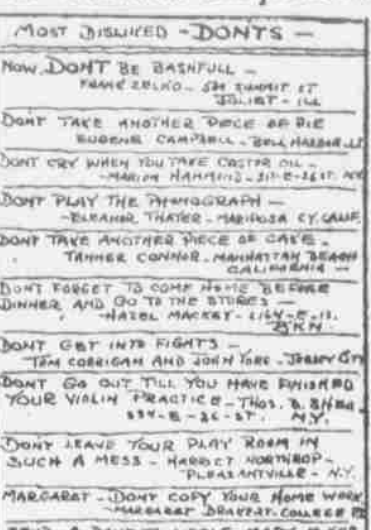 MOST DISLIKED - DONTS -
NOW DONT BE BASHFULL -
FRANK ZELKO - SUMMIT ST
JOLIET - ILL
DONT TAKE ANOTHER PIECE OF PIE
EUGENE CAMPBELL - BELL HARBOR, LI
DONT CRY WHEN YOU TAKE CASTOR OIL -
- MARION HAMMOND - NY
DONT PLAY THE PHONOGRAPH -
- ELEANOR THAYER - MARIPOSA CY. CALIF.
DONT TAKE ANOTHER PIECE OF CAKE -
TANNER CONNOR - MANHATTAN BEACH
CALIFORNIA -
DONT FORGET TO COME HOME BEFORE
DINNER AND GO TO THE STORES -
- HAZEL MACKEY -
BKN.
DONT GET INTO FIGHTS -
TOM CORRIGAN AND JOHN YORK - JERSEY CITY
DONT GO OUT TILL YOU HAVE FINISHED
YOUR VIOLIN PRACTICE - THOS. B. SHEA -
334 - E - 26 - ST. N.Y.
DONT LEAVE YOUR PLAY ROOM IN
SUCH A MESS - HARRIET NORTHROP -
PLEASANTVILLE - N.Y.
MARGARET - DONT COPY YOUR HOME WORK
- MARGARET COLLEGE PT